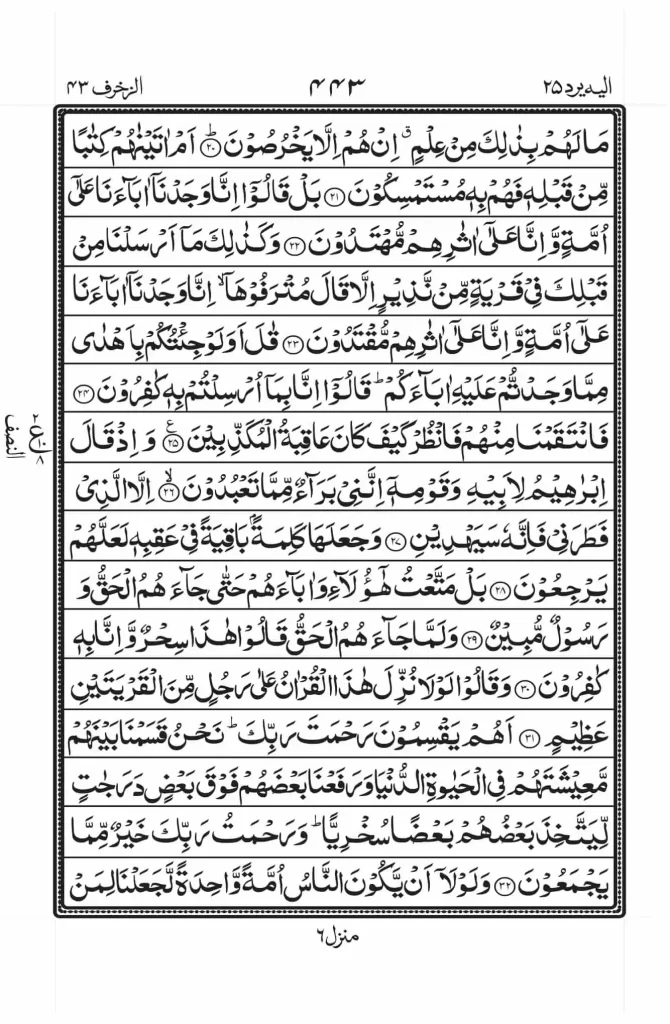 الیه یرد ۲۵
۴۴۳
الزخرف ۴۳
مَا لَهُمْ بِذٰلِكَ مِنْ عِلْمٍ ۗ اِنْ هُمْ اِلَّا يَخْرُصُوْنَ ؕ۝۲۰ اَمْ اٰتَيْنٰهُمْ كِتٰبًا
مِّنْ قَبْلِهٖ فَهُمْ بِهٖ مُسْتَمْسِكُوْنَ ۝۲۱ بَلْ قَالُوْۤا اِنَّا وَجَدْنَاۤ اٰبَآءَنَا عَلٰۤى
اُمَّةٍ وَّ اِنَّا عَلٰۤى اٰثٰرِهِمْ مُّهْتَدُوْنَ ۝۲۲ وَكَذٰلِكَ مَاۤ اَرْسَلْنَا مِنْ
قَبْلِكَ فِيْ قَرْيَةٍ مِّنْ نَّذِيْرٍ اِلَّا قَالَ مُتْرَفُوْهَاۤ ۙ اِنَّا وَجَدْنَاۤ اٰبَآءَنَا
عَلٰۤى اُمَّةٍ وَّ اِنَّا عَلٰۤى اٰثٰرِهِمْ مُّقْتَدُوْنَ ۝۲۳ قٰلَ اَوَلَوْ جِئْتُكُمْ بِاَهْدٰى
مِمَّا وَجَدْتُّمْ عَلَيْهِ اٰبَآءَكُمْ ؕ قَالُوْۤا اِنَّا بِمَاۤ اُرْسِلْتُمْ بِهٖ كٰفِرُوْنَ ۝۲۴
فَانْتَقَمْنَا مِنْهُمْ فَانْظُرْ كَيْفَ كَانَ عَاقِبَةُ الْمُكَذِّبِيْنَ ۝۲۵ ع وَ اِذْ قَالَ
اِبْرٰهِيْمُ لِاَبِيْهِ وَقَوْمِهٖۤ اِنَّنِيْ بَرَآءٌ مِّمَّا تَعْبُدُوْنَ ۙ۝۲۶ اِلَّا الَّذِيْ
فَطَرَنِيْ فَاِنَّهٗ سَيَهْدِيْنِ ۝۲۷ وَجَعَلَهَا كَلِمَةًۢ بَاقِيَةً فِيْ عَقِبِهٖ لَعَلَّهُمْ
يَرْجِعُوْنَ ۝۲۸ بَلْ مَتَّعْتُ هٰۤؤُلَآءِ وَاٰبَآءَهُمْ حَتّٰى جَآءَهُمُ الْحَقُّ وَ
رَسُوْلٌ مُّبِيْنٌ ۝۲۹ وَلَمَّا جَآءَهُمُ الْحَقُّ قَالُوْا هٰذَا سِحْرٌ وَّ اِنَّا بِهٖ
كٰفِرُوْنَ ۝۳۰ وَقَالُوْا لَوْلَا نُزِّلَ هٰذَا الْقُرْاٰنُ عَلٰى رَجُلٍ مِّنَ الْقَرْيَتَيْنِ
عَظِيْمٍ ۝۳۱ اَهُمْ يَقْسِمُوْنَ رَحْمَتَ رَبِّكَ ؕ نَحْنُ قَسَمْنَا بَيْنَهُمْ
مَّعِيْشَتَهُمْ فِي الْحَيٰوةِ الدُّنْيَا وَرَفَعْنَا بَعْضَهُمْ فَوْقَ بَعْضٍ دَرَجٰتٍ
لِّيَتَّخِذَ بَعْضُهُمْ بَعْضًا سُخْرِيًّا ؕ وَرَحْمَتُ رَبِّكَ خَيْرٌ مِّمَّا
يَجْمَعُوْنَ ۝۳۲ وَلَوْلَاۤ اَنْ يَّكُوْنَ النَّاسُ اُمَّةً وَّاحِدَةً لَّجَعَلْنَا لِمَنْ
النصف
منزل ۶